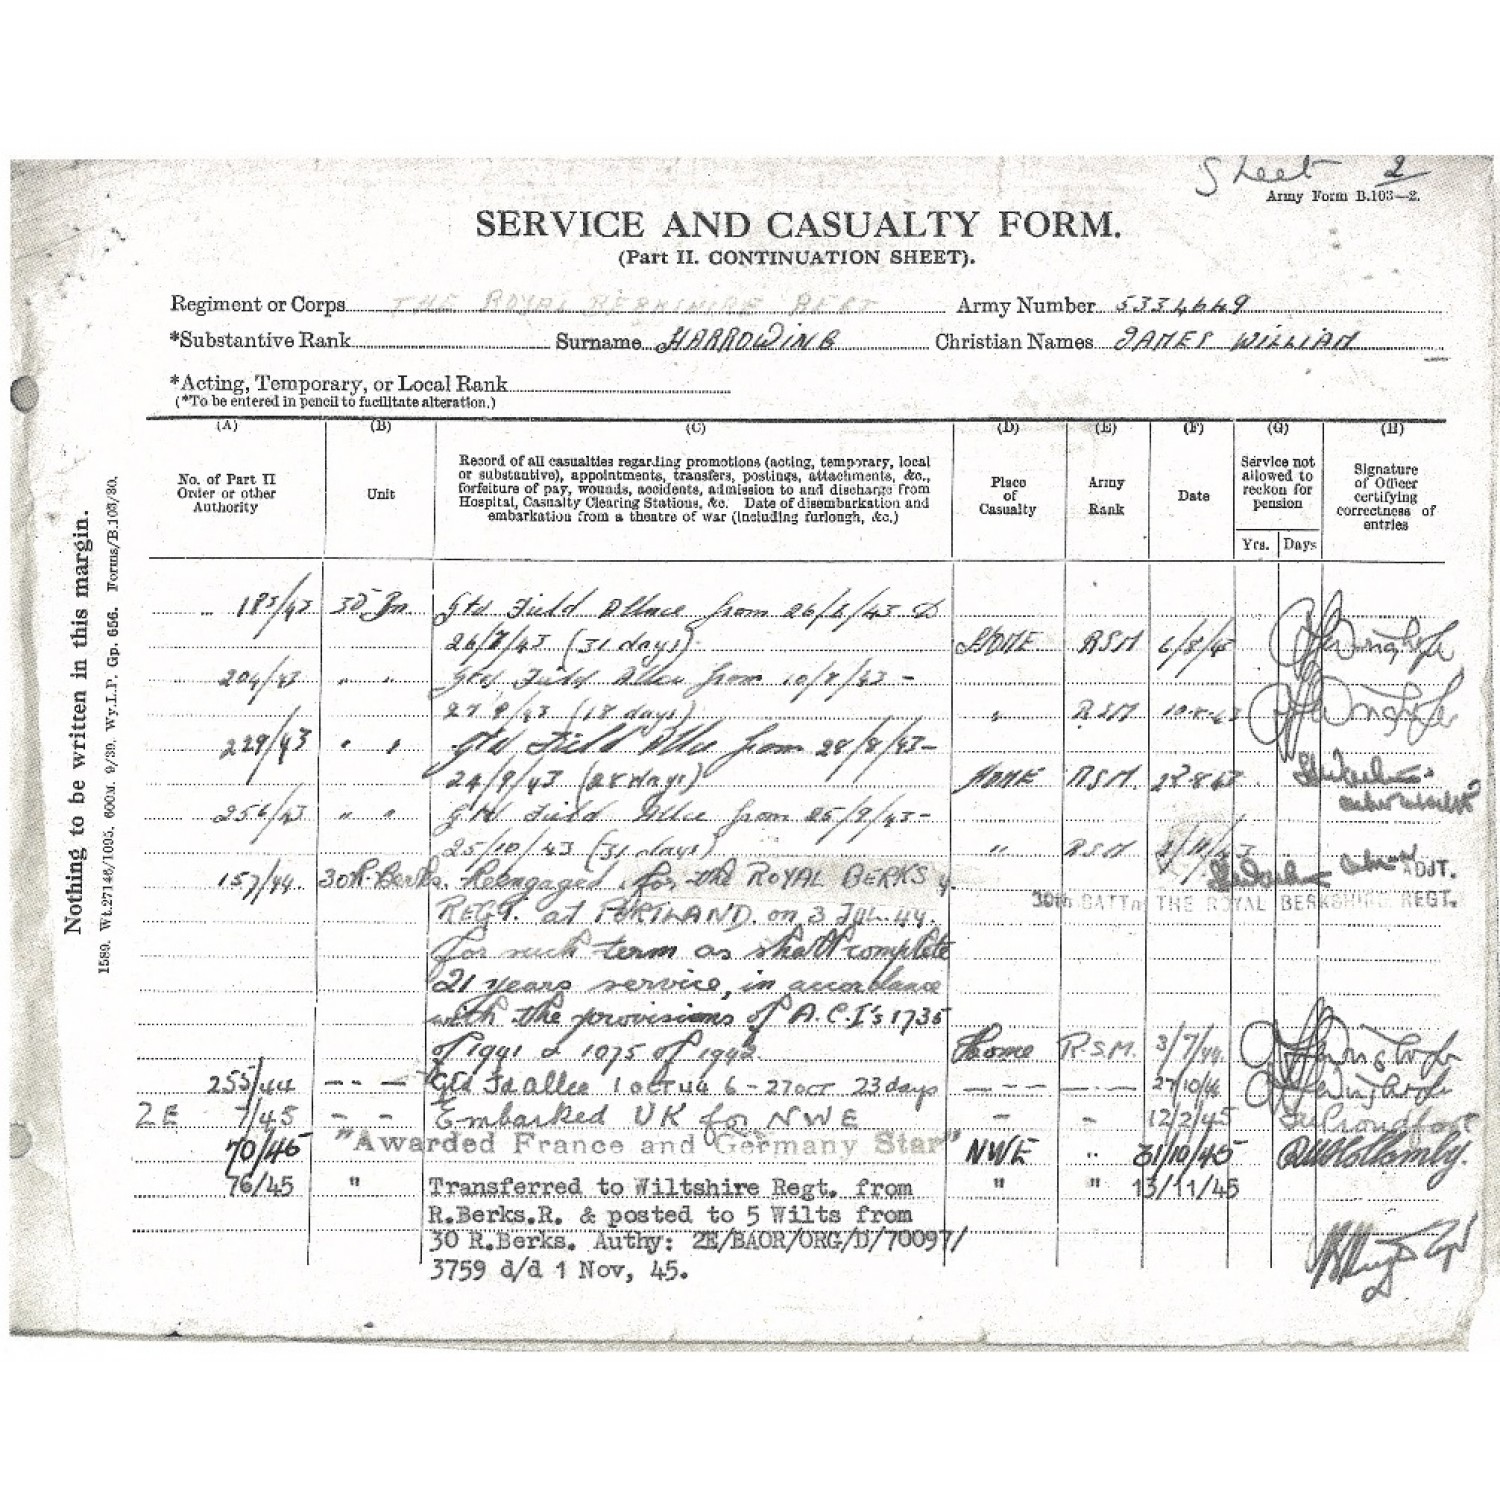 Sheet 2
Army Form B.103—2.
SERVICE AND CASUALTY FORM.
(Part II. CONTINUATION SHEET).
Regiment or Corps THE ROYAL BERKSHIRE REGT Army Number 5334649
*Substantive Rank Surname HARROWING Christian Names JAMES WILLIAM
*Acting, Temporary, or Local Rank
(*To be entered in pencil to facilitate alteration.)
(A) (B) (C) (D) (E) (F) (G) (H)
No. of Part II Order or other Authority
Unit
Record of all casualties regarding promotions (acting, temporary, local
or substantive), appointments, transfers, postings, attachments, &c.,
forfeiture of pay, wounds, accidents, admission to and discharge from
Hospital, Casualty Clearing Stations, &c. Date of disembarkation and
embarkation from a theatre of war (including furlough, &c.)
Place of Casualty
Army Rank
Date
Service not allowed to reckon for pension
Yrs. Days
Signature of Officer certifying correctness of entries
183/43 30 Bn Gtd Field Allce from 26/6/43 to
26/7/43 (31 days) HOME RSM 6/8/43
204/43 " " Gtd Field Allce from 10/8/43 –
27/8/43 (18 days) " RSM 10-8-43
229/43 " " Gtd Field Allce from 28/8/43 –
24/9/43 (28 days) HOME RSM
256/43 " " Gtd Field Allce from 25/9/43 –
25/10/43 (31 days) " RSM
157/44 30 R. Berks. Reengaged for the ROYAL BERKS ADJT.
REGT. at PORTLAND. on 3 JUL. 44. 30th BATTn THE ROYAL BERKSHIRE REGT.
for such term as shall complete
21 years service, in accordance
with the provisions of A.C.I's 1735
of 1941 & 1075 of 1942. Home R.S.M. 3/7/44
255/44 -- – Gtd Fd allce 1 OCT 44 6 – 27 OCT 23 days – -- – - – 27/10/44
2E 7/45 – – Embarked UK for NWE – – 12/2/45
70/45 "Awarded France and Germany Star" NWE " 31/10/45
76/45 " Transferred to Wiltshire Regt. from " " 13/11/45
R.Berks.R. & posted to 5 Wilts from
30 R.Berks. Authy: 2E/BAOR/ORG/D/70097/
3759 d/d 1 Nov, 45.
Nothing to be written in this margin.
1589. Wt.27146/1095. 600M. 9/39. Wy.L.P. Gp. 656. Forms/B.103/30.